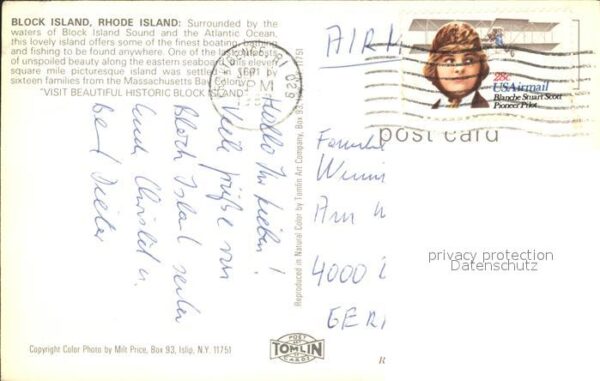 BLOCK ISLAND, RHODE ISLAND: Surrounded by the
waters of Block Island Sound and the Atlantic Ocean,
this lovely island offers some of the finest boating, bathing
and fishing to be found anywhere. One of the last outposts
of unspoiled beauty along the eastern seaboard, this eleven
square mile picturesque island was settled in 1661 by
sixteen families from the Massachusetts Bay Colony.
"VISIT BEAUTIFUL HISTORIC BLOCK ISLAND"
Hallo Ihr Lieben!
Viele Grüße von
Block Island senden
Euch Christel u.
Dieter
Reproduced in Natural Color by Tomlin Art Company, Box 93, 11751
Copyright Color Photo by Milt Price, Box 93, Islip, N.Y. 11751
POST
TOMLIN
CARDS
PM
029
28c
USAirmail
Blanche Stuart Scott
Pioneer Pilot
post card
Am
4000
GER
privacy protection
Datenschutz
R